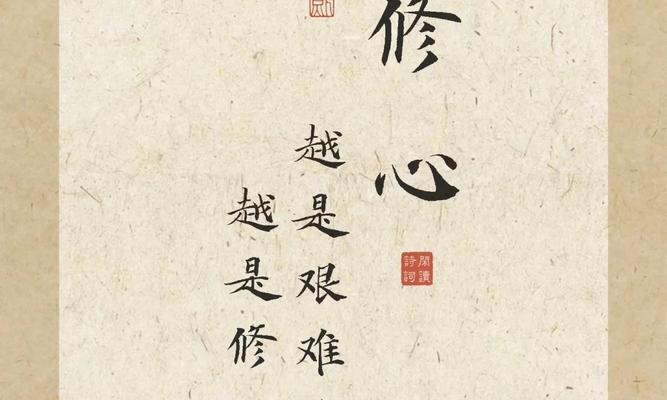 修心
閑讀詩詞
越是艰难
越是修